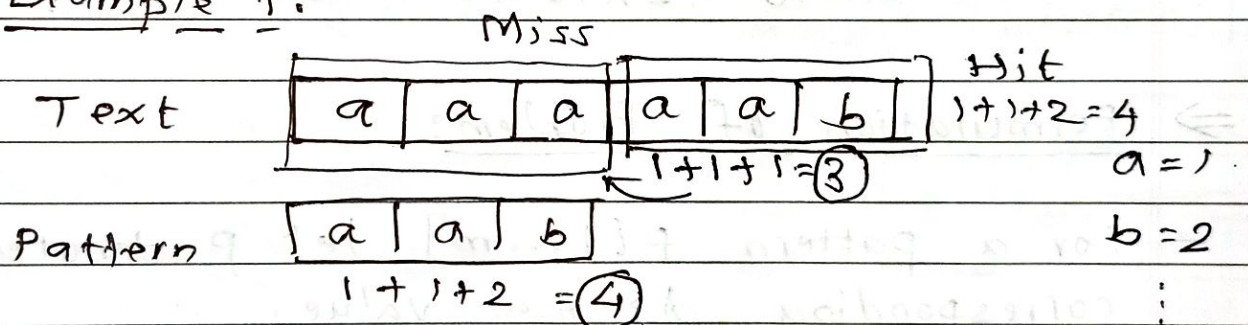 Example 1:
Miss
Hit
Text a a a a a b 1+1+2=4
1+1+1=3 a=1
Pattern a a b b=2
1+1+2 =4 ⋮